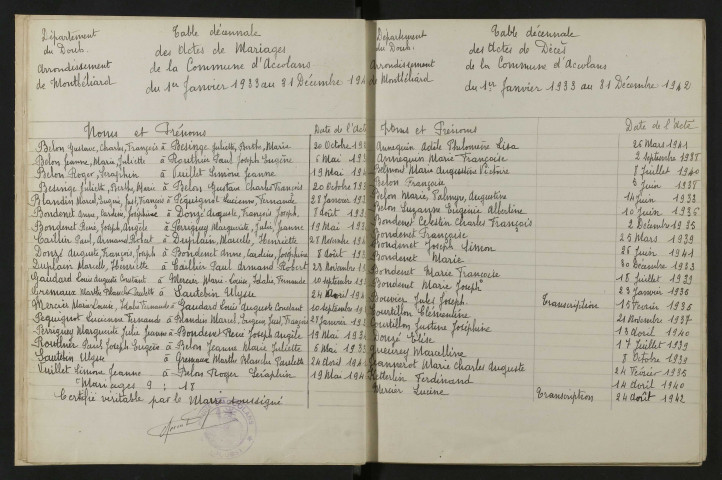 Département
du Doubs
Arrondissement
de Montbéliard
Table décennale
des Actes de Mariages
de la Commune d'Accolans
du 1er Janvier 1933 au 31 Décembre 194
Noms et Prénoms Date de l'Acte
Belon Gustave, Charles, François à Bessinge Juliette, Berthe, Marie 20 Octobre 193
Belon Jeanne, Marie, Juliette à Routhier Paul Joseph Eugène 6 Mai 193
Belon Roger, Séraphin à Vuillet Simone Jeanne 19 Mai 194
Bessinge Juliette, Berthe, Marie à Belon Gustave Charles François 20 Octobre 193
Blandin Marcel, Eugène, Just, François à Pequignot Lucienne, Fernande 28 Janvier 193
Bondenet Anne, Caroline, Joséphine à Donzé Auguste, François Joseph 8 Août 193
Bondenet René, Joseph, Angèle à Perriguey Marguerite, Julie, Jeanne 19 Mai 193
Carlier Paul, Armand, Robert à Duplain, Marcelle, Henriette 28 Novembre 194
Donzé Auguste, François, Joseph à Bondenet Anne, Caroline, Joséphine 8 Août 193
Duplain Marcelle, Henriette à Carlier Paul Armand Robert 28 Novembre 19
Gaudard Louis Auguste Constant à Mercier Marie-Louise, Idalie, Fernande 10 Septembre 19
Gremaux Marthe Blanche Paulette à Sautebin Ulysse 24 Avril 194
Mercier Marie-Louise, Idalie Fernande à Gaudard Louis Auguste Constant 10 Septembre 19
Pequignot Lucienne Fernande à Blandin Marcel, Eugène, Just, François 28 Janvier 193
Perriguey Marguerite Julie Jeanne à Bondenet René Joseph Angèle 19 Mai 193
Routhier Paul Joseph Eugène à Belon Jeanne Marie Juliette 6 Mai 193
Sautebin Ulysse à Gremaux Marthe Blanche Paulette 24 Avril 194
Vuillet Simone Jeanne à Belon Roger Séraphin 19 Mai 194
Mariages 9 : 18
Certifié véritable par le Maire soussigné
Département
du Doubs
Arrondissement
de Montbéliard
Table décennale
des Actes de Décès
de la Commune d'Accolans
du 1er Janvier 1933 au 31 Décembre 1942
Noms et Prénoms Date de l'Acte
Adèle Philomène Lisa 26 Mars 1941
Annequin Marie Françoise 2 Septembre 1938
Marie Augustine Victoire 8 Juillet 1940
Belon Françoise 3 Juin 1938
Belon Marie, Palmyre, Augustine 14 Juin 1933
Belon Suzanne Eugénie Albertine 10 Juin 1936
Bondenet Célestin Charles François 2 Décembre 1935
Bondenet Françoise 25 Mars 1939
Bondenet Joseph Simon 26 Juin 1941
Bondenet Marie 30 Décembre 1933
Bondenet Marie Françoise 18 Juillet 1939
Bondenet Marie Joseph 23 Janvier 1936
Bouvier Jules Joseph Transcription 15 Février 1935
Courtillon Clémentine 21 Novembre 1937
Courtillon Justine Joséphine 13 Avril 1940
Donzé Élise 17 Juillet 1939
Marcelline 8 Octobre 1939
Jeannerot Marie Charles Auguste 24 Février 1935
Ketterlin Ferdinand 14 Avril 1940
Mercier Lucine Transcription 24 Août 1942